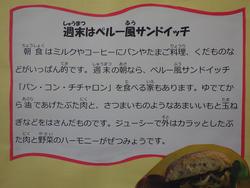 週末はペルー風サンドイッチ
朝食はミルクやコーヒーにパンやたまご料理、くだものな
どがいっぱん的です。週末の朝なら、ペルー風サンドイッチ
「パン・コン・チチャロン」を食べる家もあります。ゆでてか
ら油であげたぶた肉と、さつまいものようなあまいいもと玉ね
ぎなどをはさんだものです。ジューシーで外はカラッとしたぶ
た肉と野菜のハーモニーがぜつみょうです。